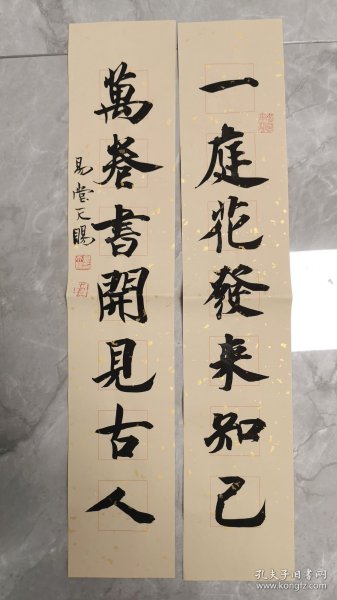 一庭花發来知己
萬卷書開見古人
易堂天賜
孔夫子旧书网
www.kongfz.com